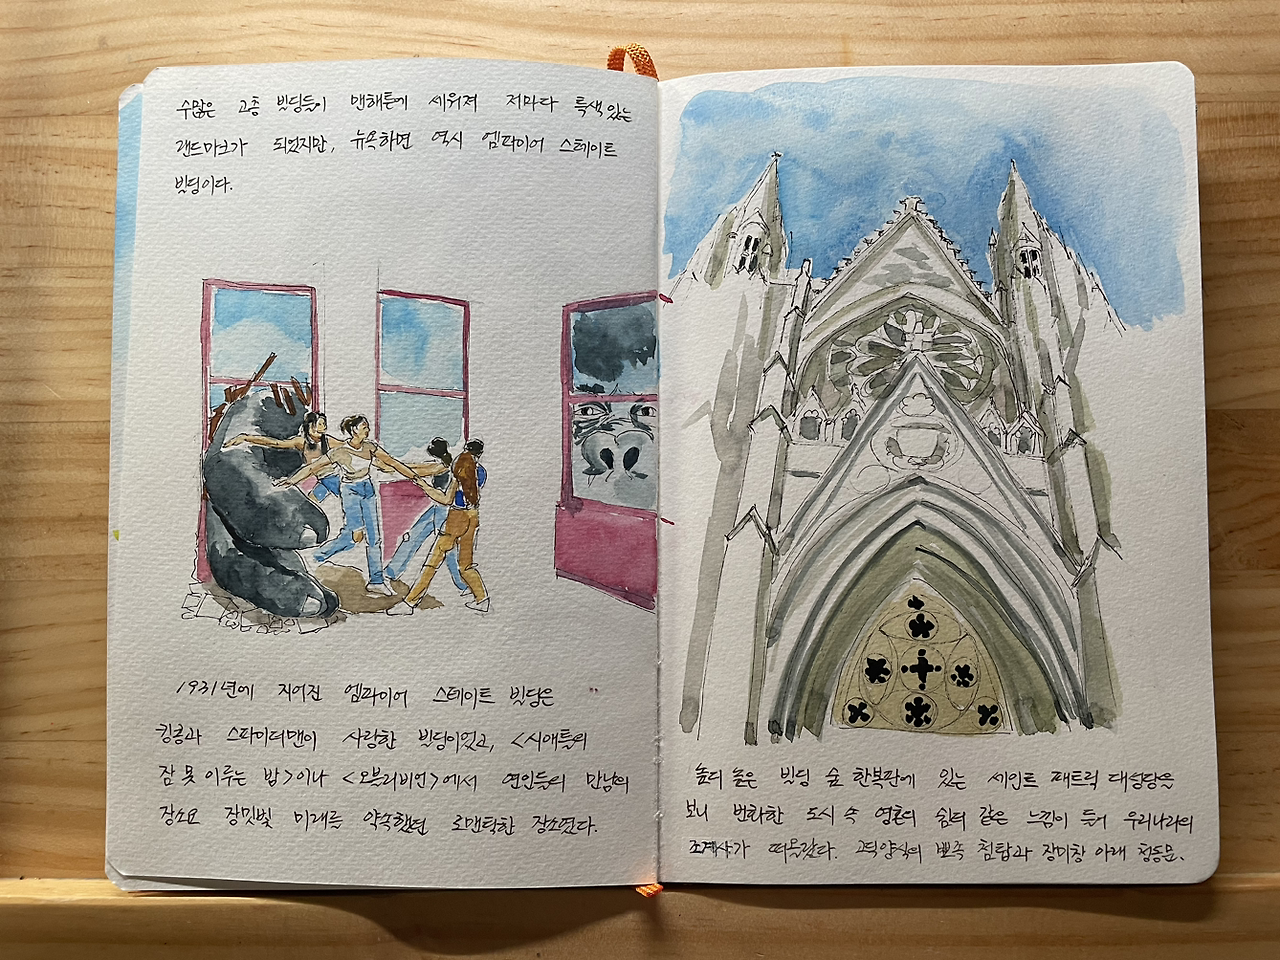 수많은 고층 빌딩들이 맨해튼에 세워져 저마다 특색있는
랜드마크가 되었지만, 뉴욕하면 역시 엠파이어 스테이트
빌딩이다.
1931년에 지어진 엠파이어 스테이트 빌딩은
킹콩과 스파이더맨이 사랑한 빌딩이었고, <시애틀의
잠 못 이루는 밤>이나 <오블리비언>에서 연인들의 만남의
장소요 장밋빛 미래를 약속했던 로맨틱한 장소였다.
높디 높은 빌딩 숲 한복판에 있는 세인트 패트릭 대성당을
보니 번화한 도시 속 영혼의 쉼터 같은 느낌이 들어 우리나라의
조계사가 떠올랐다. 고딕양식의 뾰족 첨탑과 장미창 아래 청동문.